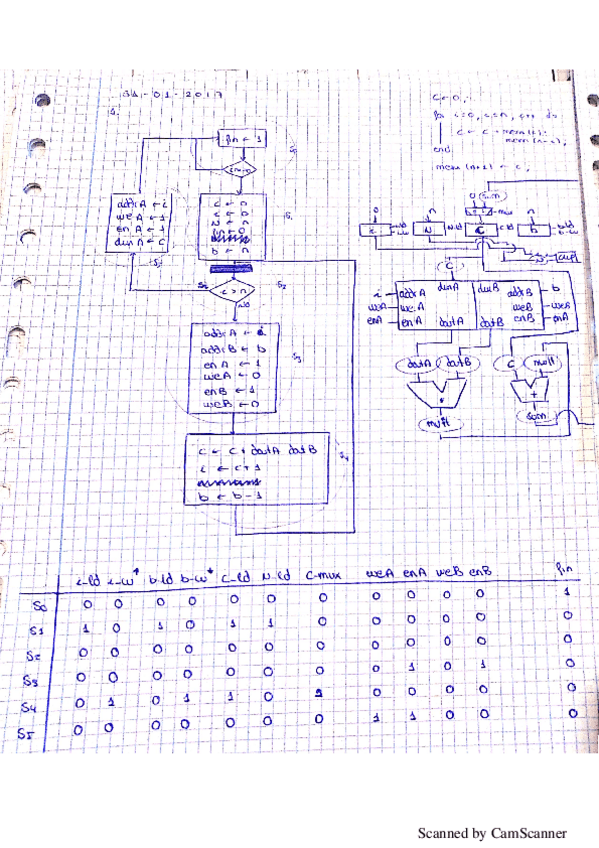 31-01-2017
1.
fin ← 1
S0
i ← 0
c ← 0
N ← n
b ← n
S1
addrA ← i
weA ← 1
enA ← 1
dinA ← c
S5
i > n
Si
S2
No
addrA ← i
addrB ← b
enA ← 1
weA ← 0
enB ← 1
weB ← 0
S3
c ← c + doutA doutB
i ← i + 1
b ← b - 1
S4
c ← 0;
for i=0, i≤n, i++ do
c ← c + mem(i)·
mem(n-i);
end
mem(n+1) ← c;
0 sum
c-mux
0 n n
i N C b
N-ld c-ld b-ld
C
i addrA dinA dinB addrB b
weA weA weB weB
enA enA doutA doutB enB
doutA doutB C mult
* +
mult sum
i-ld i-up b-ld b-up c-ld N-ld C-mux weA enA weB enB fin
S0 0 0 0 0 0 0 0 0 0 0 0 1
S1 1 0 1 0 1 1 0 0 0 0 0 0
S2 0 0 0 0 0 0 0 0 0 0 0 0
S3 0 0 0 0 0 0 0 0 1 0 1 0
S4 0 1 0 1 1 0 1 0 0 0 0 0
S5 0 0 0 0 0 0 0 1 1 0 0 0
Scanned by CamScanner